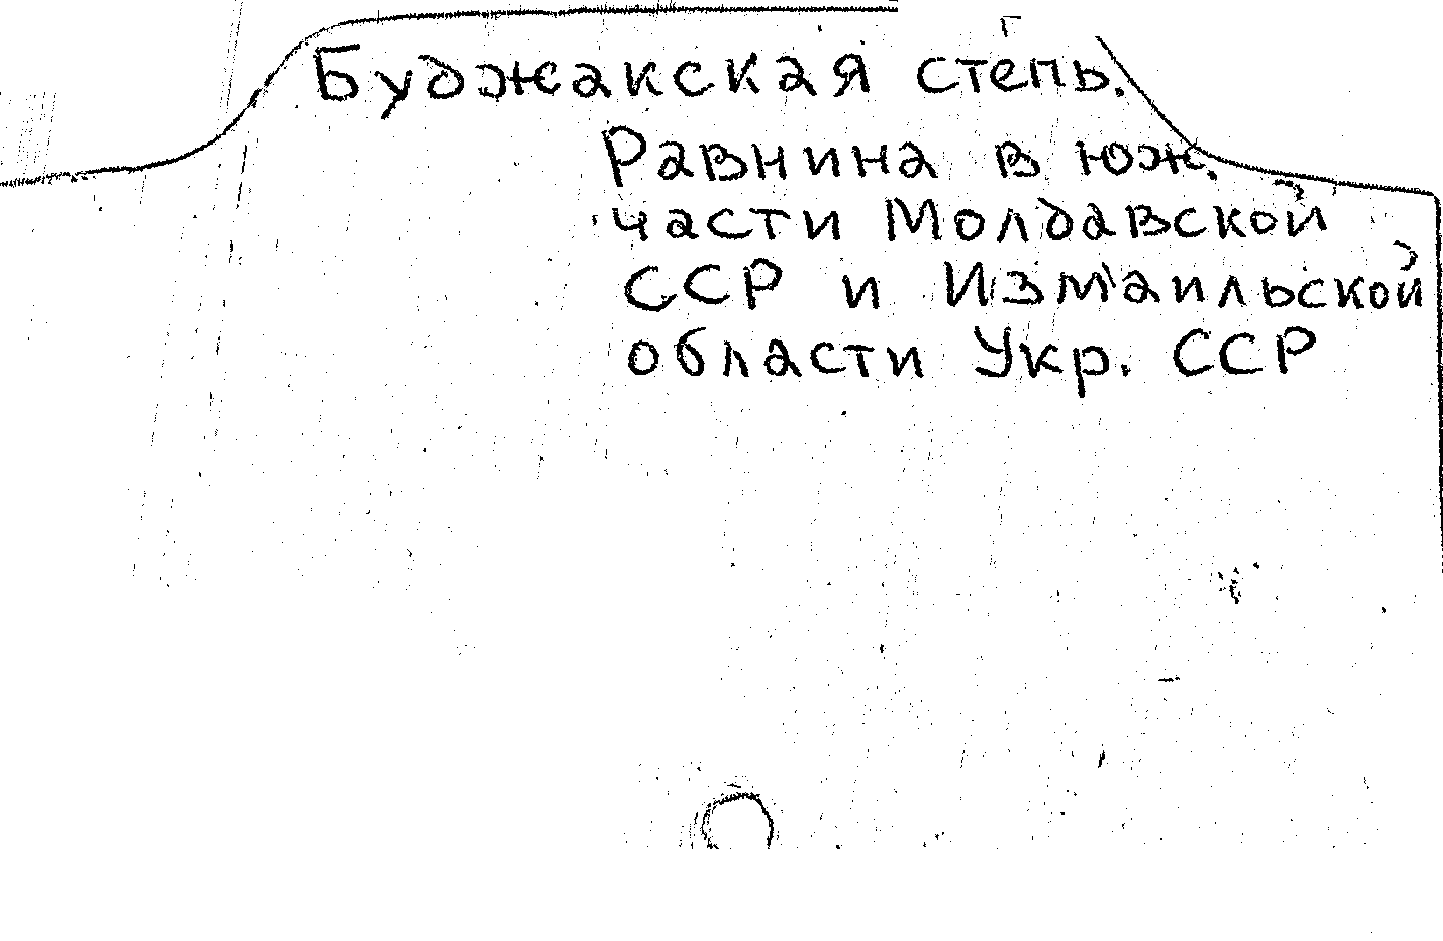 Буджакская степь.
Равнина в юж.
части Молдавской
ССР и Измаильской
области Укр. ССР